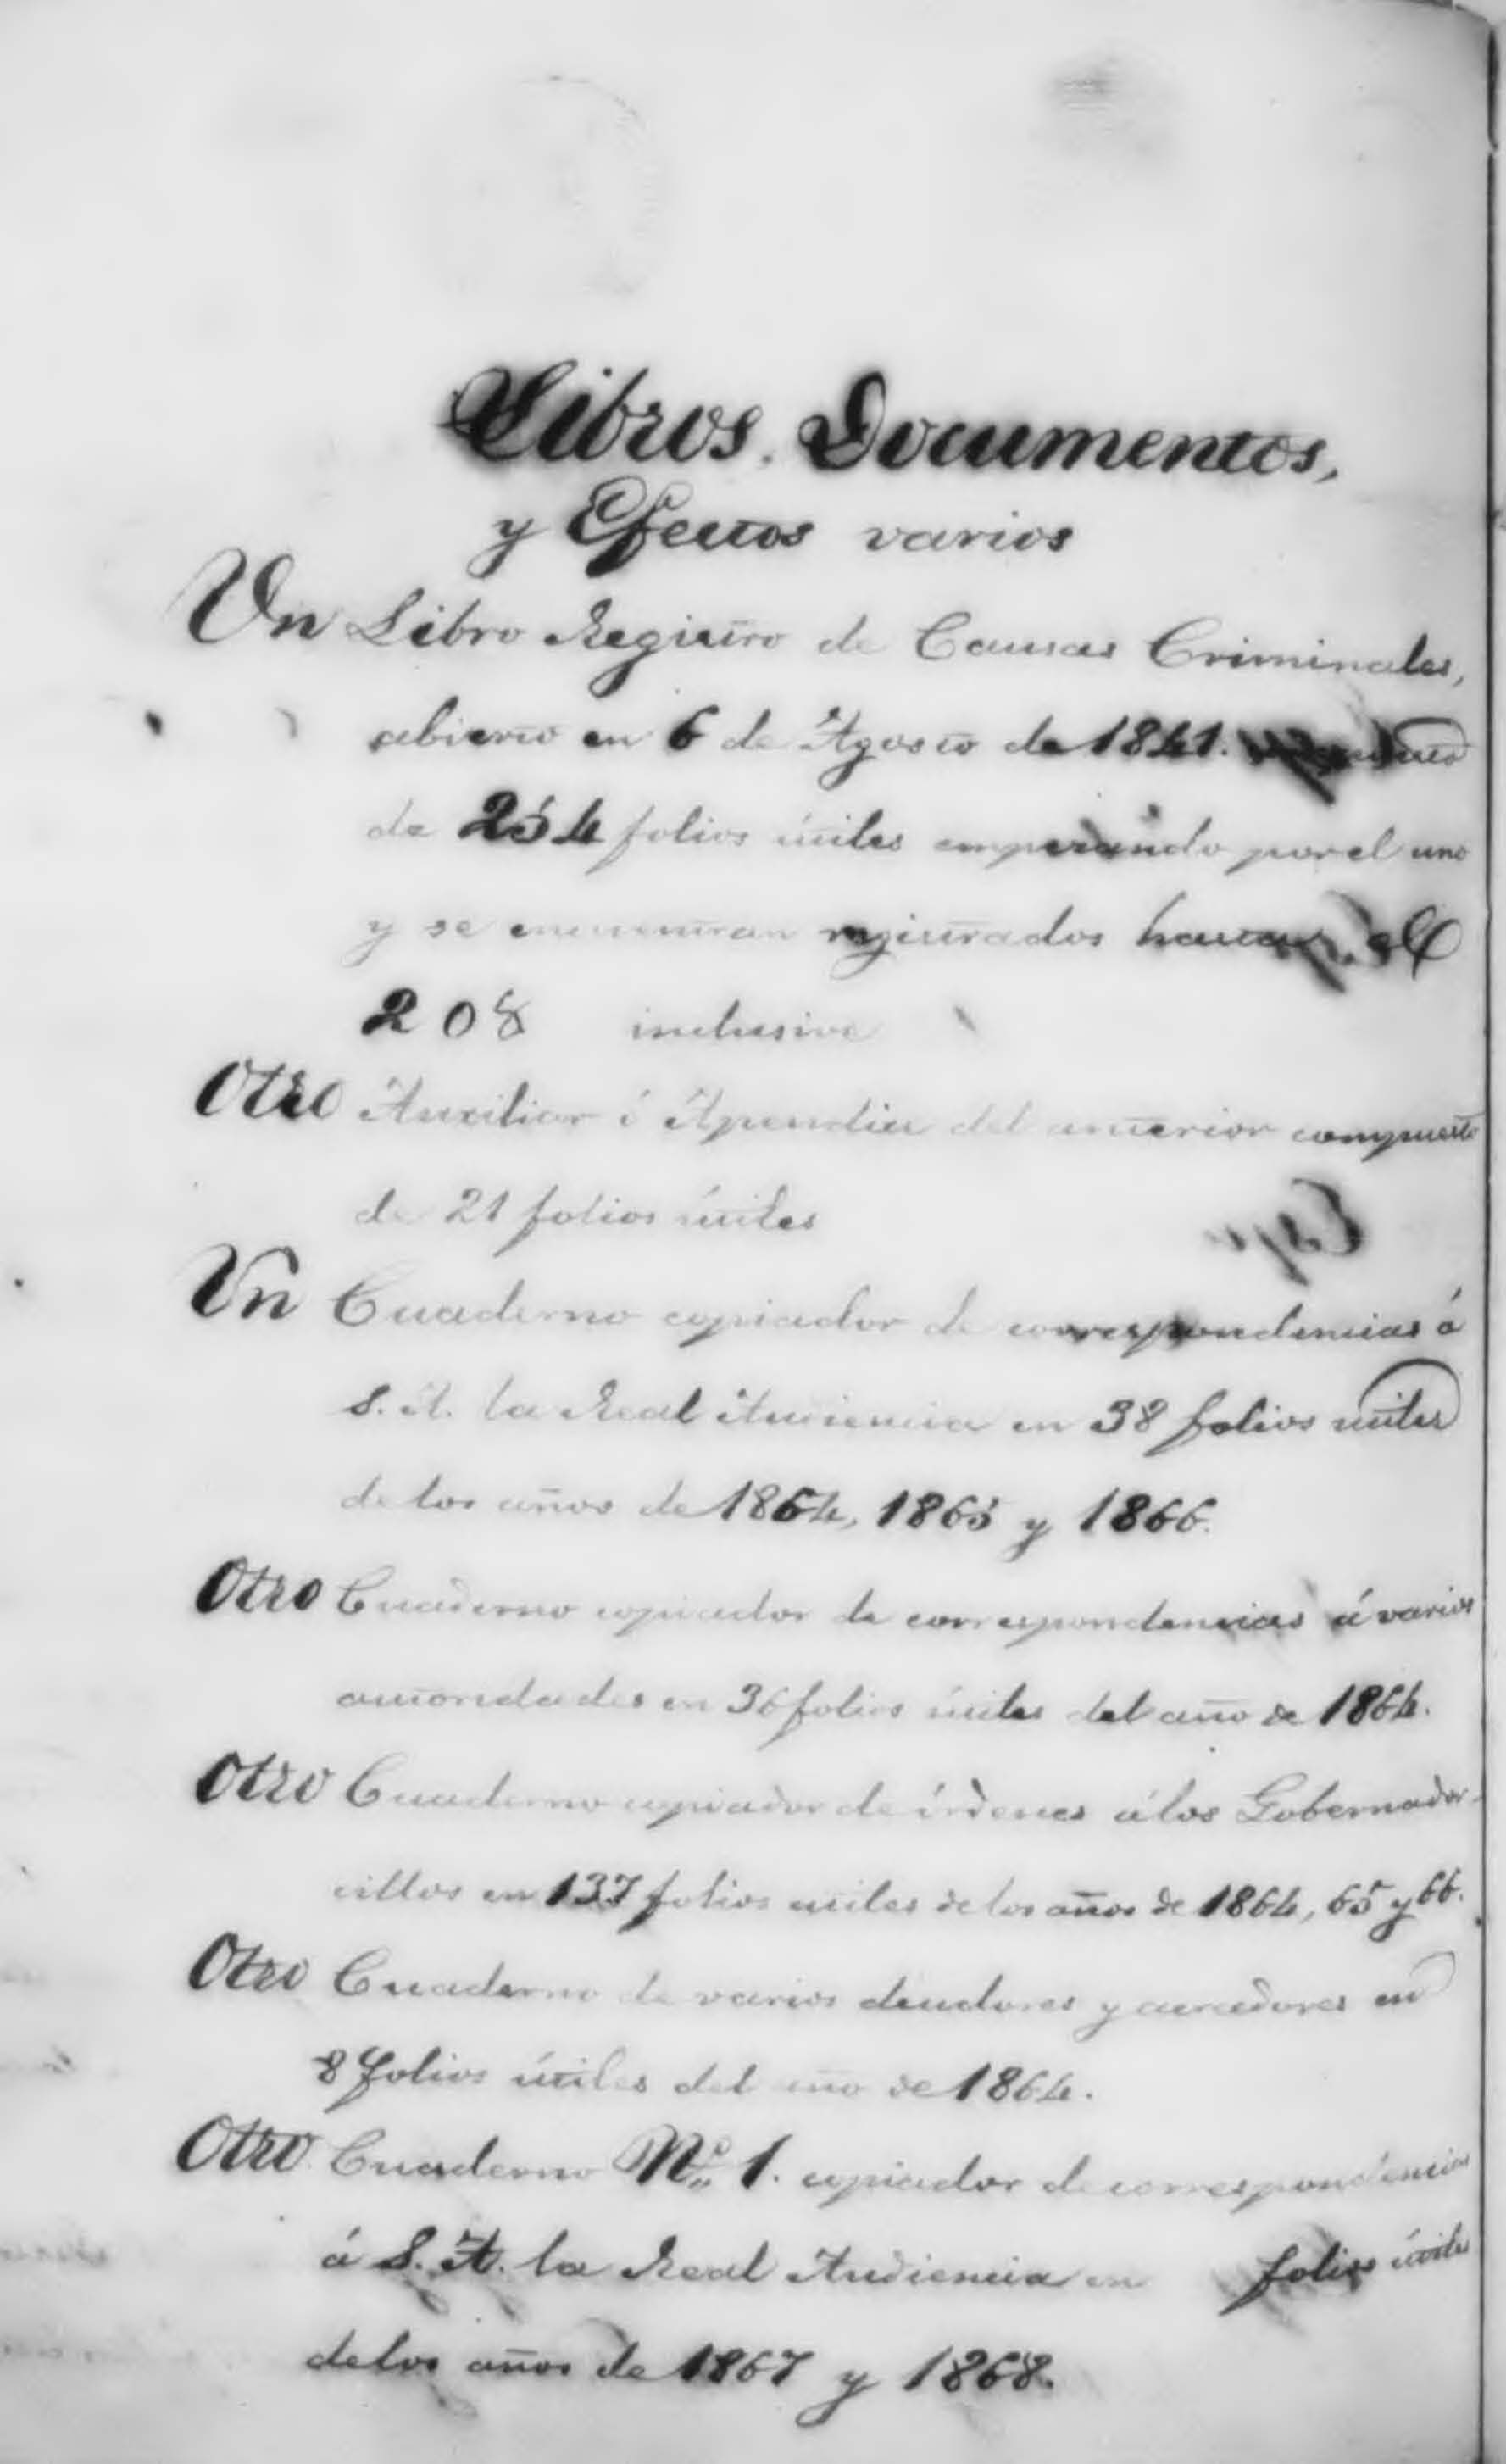 Libros, Documentos,
y Efectos varios
Un Libro Registro de Causas Criminales,
abierto en 6 de Agosto de 1841.
de 254 folios útiles empezando por el uno
y se encuentran registrados hasta el
208 inclusive
Otro Auxiliar ó Apendice del anterior compuesto
de 21 folios útiles
Un Cuaderno copiador de correspondencias á
S. A. la Real Audiencia en 38 folios utiles
de los años de 1864, 1865 y 1866.
Otro Cuaderno copiador de correspondencias á varios
autoridades en 36 folios útiles del año de 1864.
Otro Cuaderno copiador de órdenes á los Gobernador-
cillos en 137 folios utiles de los años de 1864, 65 y 66.
Otro Cuaderno de varios deudores y acredores en
8 folios útiles del año de 1864.
Otro Cuaderno Nº 1. copiador de correspondencias
á S. A. la Real Audiencia en folios útiles
de los años de 1867 y 1868.